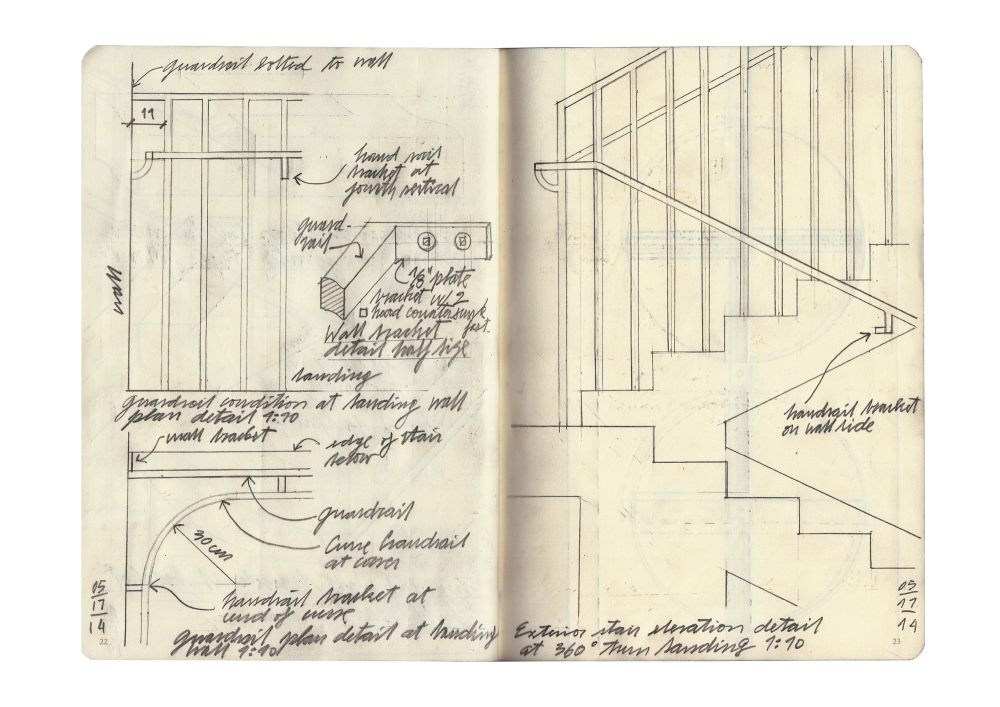 guardrail bolted to wall
11
hand rail
bracket at
fourth vertical
guard-
rail
wall
1/8" plate
bracket w/ 2
hard countersunk
fast.
Wall bracket
detail half size
landing
guardrail condition at landing wall
plan detail 1:10
wall bracket
edge of stair
below
guardrail
Curve handrail
at corner
30cm
handrail bracket at
end of curve
05
17
14
22
guardrail plan detail at landing
wall 1:10
handrail bracket
on wall side
Exterior stair elevation detail
at 360° turn landing 1:10
05
17
14
23